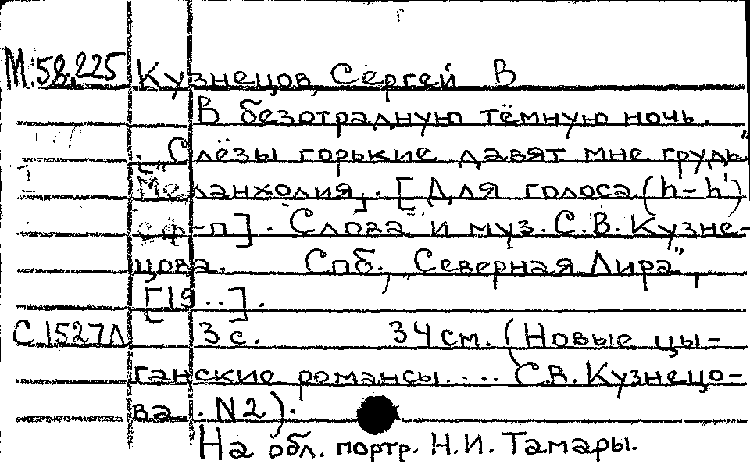 М:58.225 Кузнецов, Сергей В
В безотрадную тёмную ночь.
„Слёзы горькие давят мне грудь"
["Меланхолия]. [Для голоса (h-h')
с ф-п]. Слова и муз. С.В. Кузне-
цова. Спб., „Северная Лира",
[19..].
С.1527Л 3 с. 34 см. (Новые цы-
ганские романсы.... С.В. Кузнецо-
ва. N2).
На обл. портр. Н.И. Тамары.